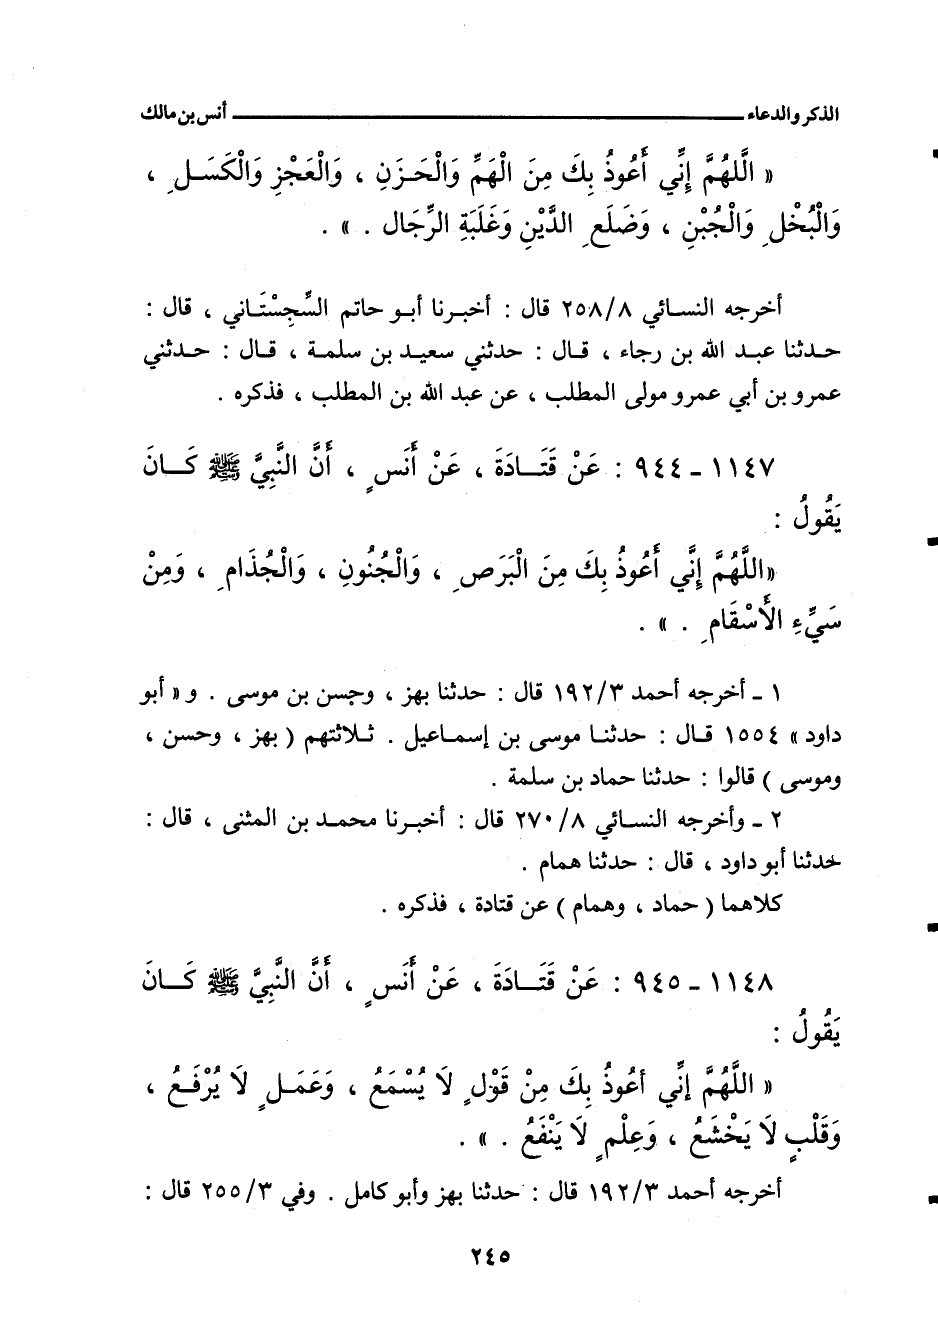 الذكر والدعاء ـــــــــــــــــــــــــ أنس بن مالك
« اللَّهُمَّ إِنِّي أَعُوذُ بِكَ مِنَ الْهَمِّ وَالْحَزَنِ ، وَالْعَجْزِ وَالْكَسَلِ ،
وَالْبُخْلِ وَالْجُبْنِ ، وَضَلَعِ الدَّيْنِ وَغَلَبَةِ الرِّجَالِ . » .
أخرجه النسائي ٢٥٨/٨ قال : أخبرنا أبو حاتم السِّجِسْتَاني ، قال :
حدثنا عبد الله بن رجاء ، قال : حدثني سعيد بن سلمة ، قال : حدثني
عمرو بن أبي عمرو مولى المطلب ، عن عبد الله بن المطلب ، فذكره .
١١٤٧ ـ ٩٤٤ : عَنْ قَتَادَةَ ، عَنْ أَنَسٍ ، أَنَّ النَّبِيَّ ﷺ كَانَ
يَقُولُ :
«اللَّهُمَّ إِنَّي أَعُوذُ بِكَ مِنَ الْبَرَصِ ، وَالْجُنُونِ ، وَالْجُذَامِ ، وَمِنْ
سَيِّءِ الأَسْقَامِ . » .
١ ـ أخرجه أحمد ١٩٢/٣ قال : حدثنا بهز ، وحسن بن موسى . و « أبو
داود » ١٥٥٤ قال : حدثنا موسى بن إسماعيل . ثلاثتهم ( بهز ، وحسن ،
وموسى ) قالوا : حدثنا حماد بن سلمة .
٢ ـ وأخرجه النسائي ٢٧٠/٨ قال : أخبرنا محمد بن المثنى ، قال :
حدثنا أبو داود ، قال : حدثنا همام .
كلاهما ( حماد ، وهمام ) عن قتادة ، فذكره .
١١٤٨ ـ ٩٤٥ : عَنْ قَتَادَةَ ، عَنْ أَنَسٍ ، أَنَّ النَّبِيَّ ﷺ كَانَ
يَقُولُ :
« اللَّهُمَّ إِنِّي أعُوذُ بِكَ مِنْ قَوْلٍ لَا يُسْمَعُ ، وَعَمَلٍ لَا يُرْفَعُ ،
وَقَلْبٍ لَا يَخْشَعُ ، وَعِلْمٍ لَا يَنْفَعُ . » .
أخرجه أحمد ١٩٢/٣ قال : حدثنا بهز وأبو كامل . وفي ٢٥٥/٣ قال :
٢٤٥